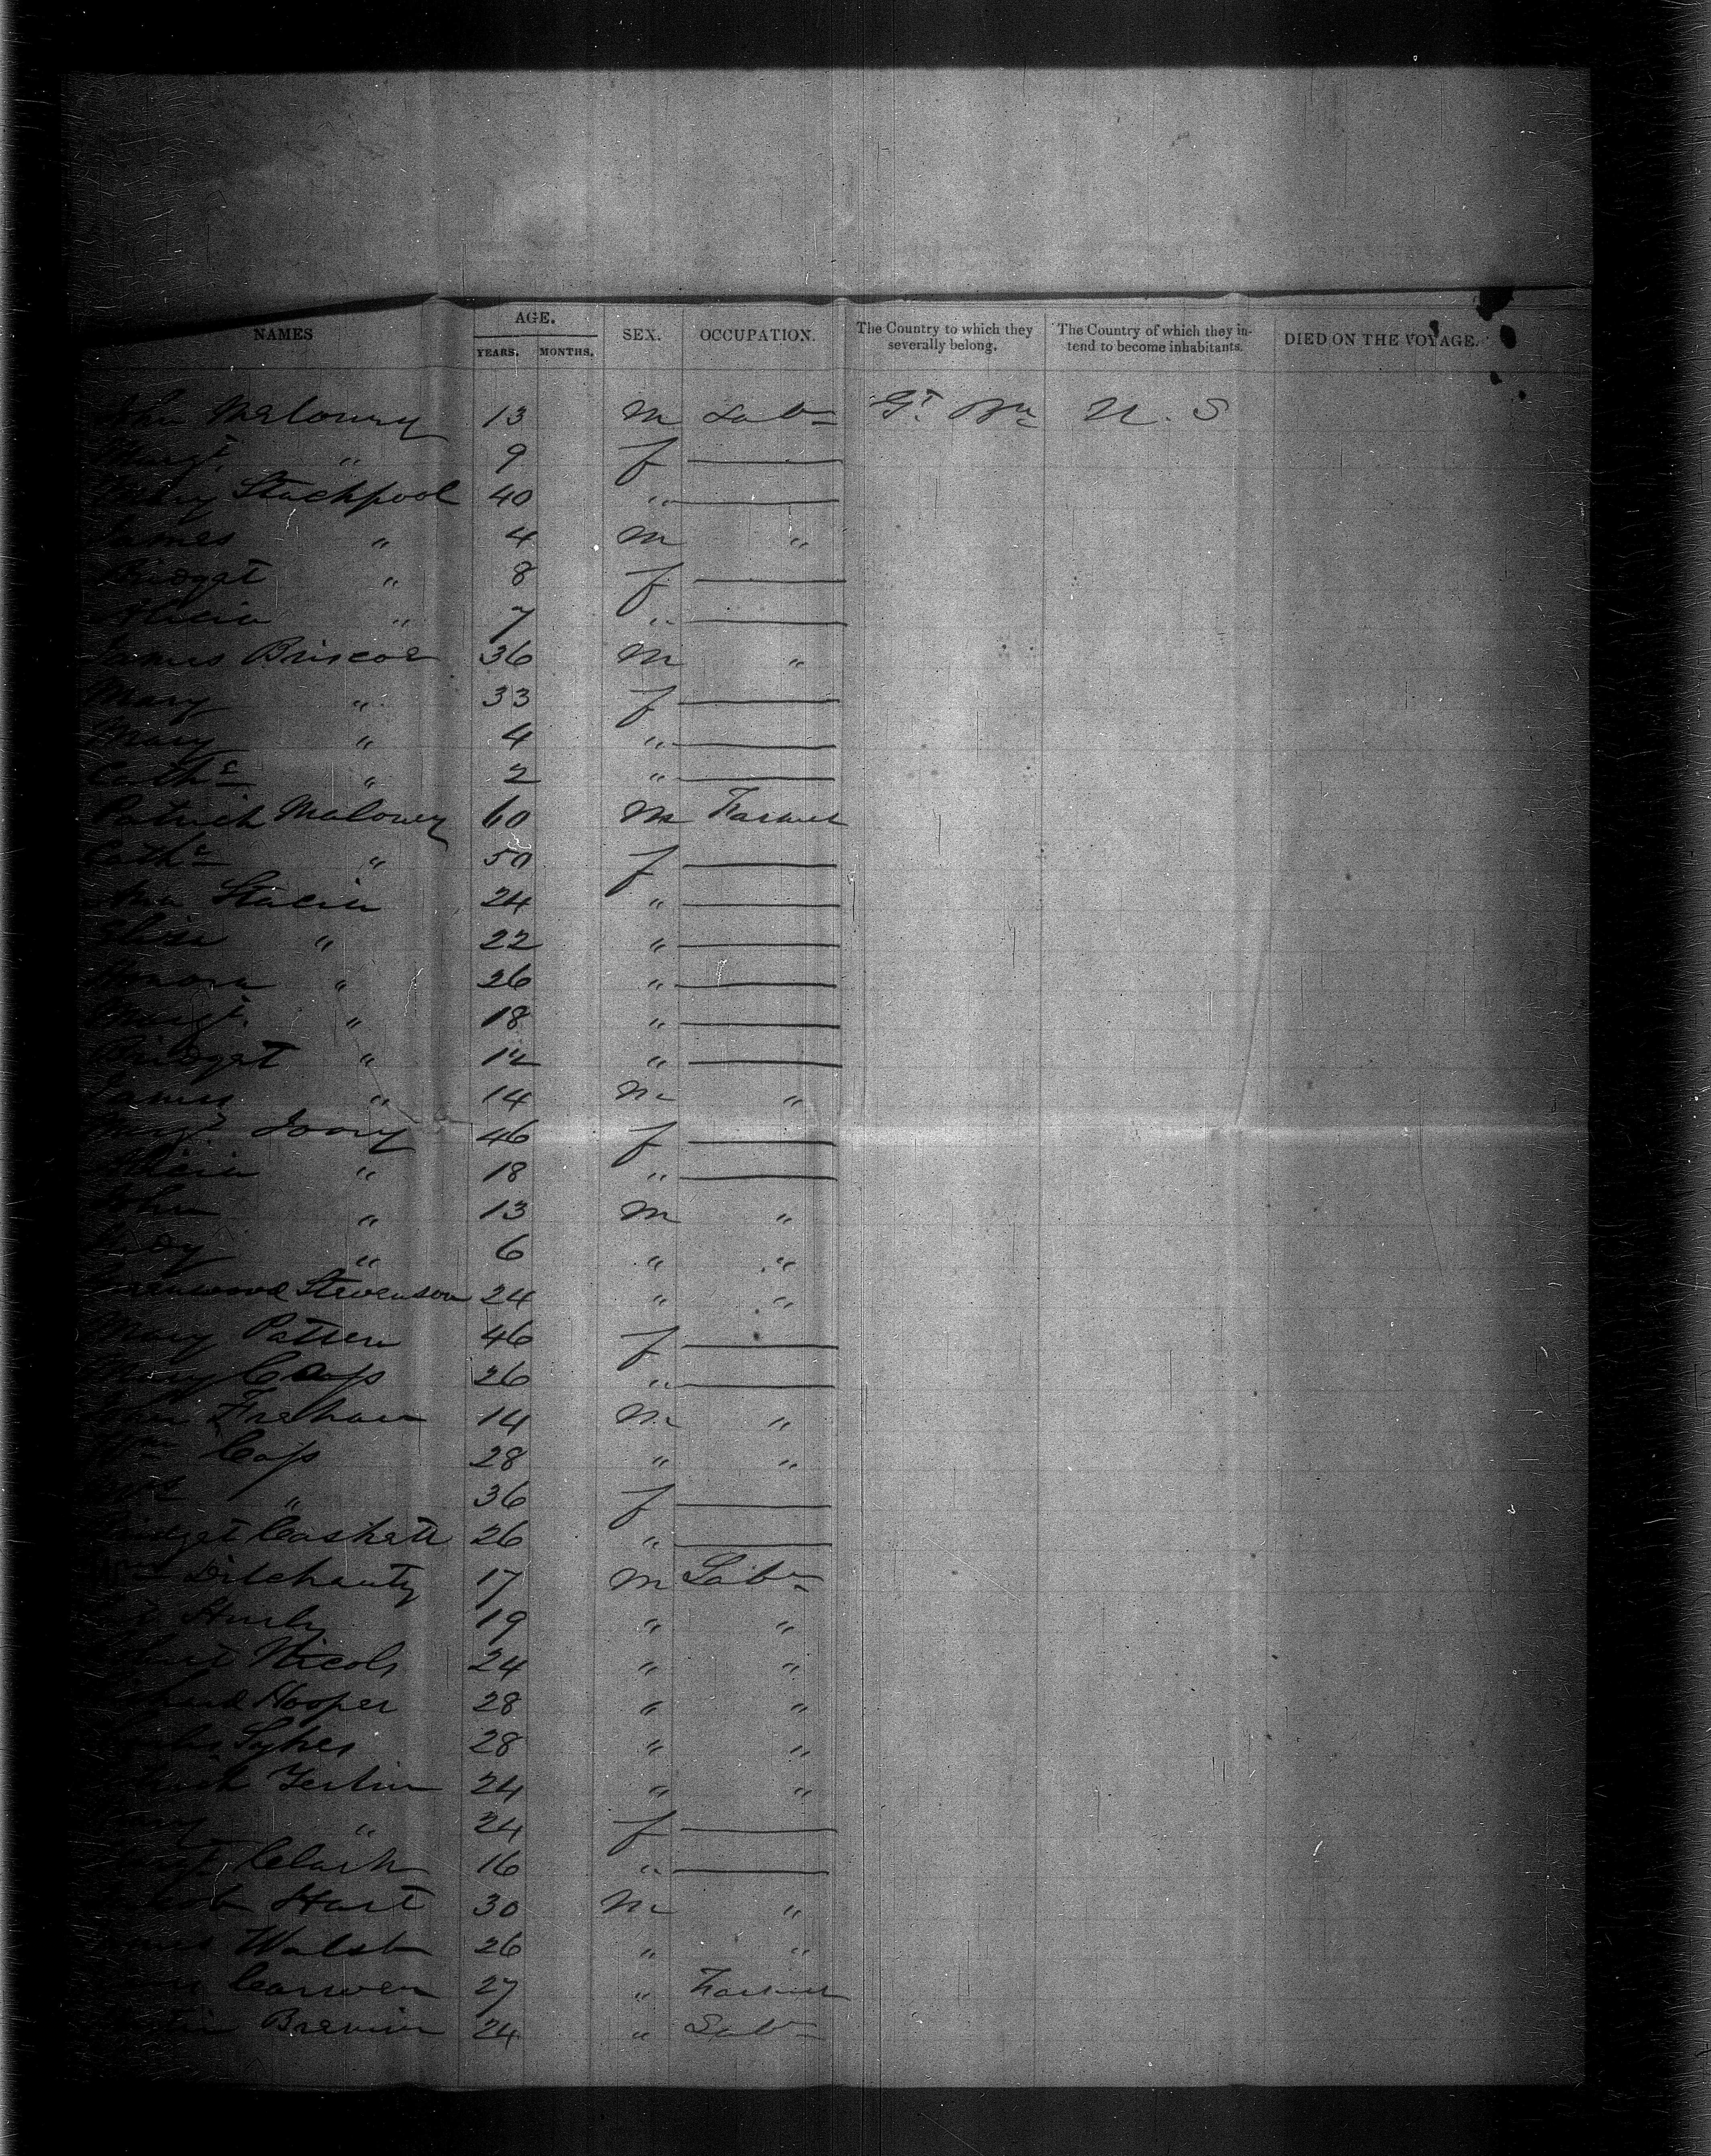 NAMES AGE. YEARS. MONTHS. SEX. OCCUPATION. The Country to which they severally belong. The Country of which they intend to become inhabitants. DIED ON THE VOYAGE.
John Maloney 13 m Labr Gt. Bn U. S
Margt. " 9 f
Mary Stackpool 40 "
James " 4 m "
Bridget " 8 f
Alicia " 7 "
James Briscoe 36 m "
Mary " 33 f
Mary " 4 "
Cathe " 2 "
Patrick Maloney 60 m Farmer
Cathe " 50 f
Ann Stacia 24 "
Eliza " 22 "
Honora " 26 "
Margt. " 18 "
Bridget " 12 "
James " 14 m "
Margt. Ivory 46 f
Alicia " 18 "
John " 13 m "
" 6 " "
Stevenson 24 " "
Mary Patten 46 f
Mary 26 "
John 14 m "
Wm Cass 28 " "
Mrs " 36 f
Bridget Caskett 26 "
Wm 17 m Labr
Hurly 19 " "
Nicols 24 " "
Hooper 28 " "
Sykes 28 " "
24 " "
Mary " 24 f
Margt. Clark 16 "
Hart 30 m "
James Walsh 26 " "
27 " Farmer
24 " Labr